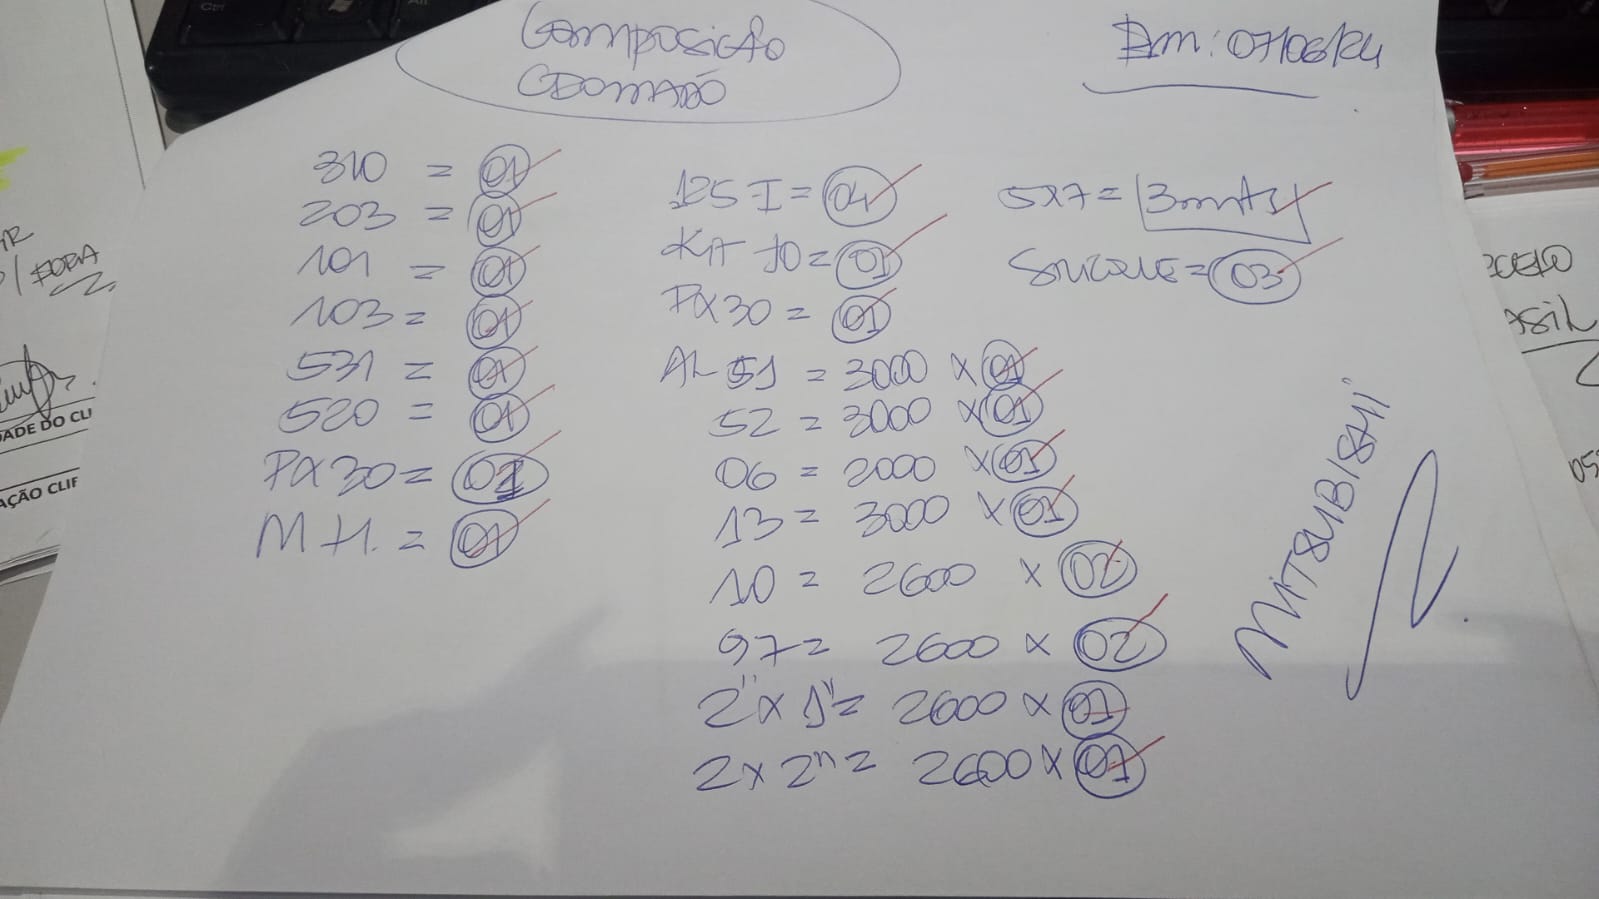 Composição
CROMADO
Em: 07/06/24
310 = 01
203 = 01
101 = 01
103 = 01
531 = 01
520 = 01
PX30 = 01
M H. = 01
125 I = 04
KIT 10 = 01
PX 30 = 01
AL 51 = 3000 X 01
52 = 3000 X 01
06 = 2000 X 01
13 = 3000 X 01
10 = 2600 X 02
97 = 2600 X 02
2" X 1" = 2600 X 01
2 X 2" = 2600 X 01
5X7 = 3mts
= 03
MITSUBISHI
P/ FORA
DADE DO CLI
AÇÃO CLIF
Ctrl
Alt